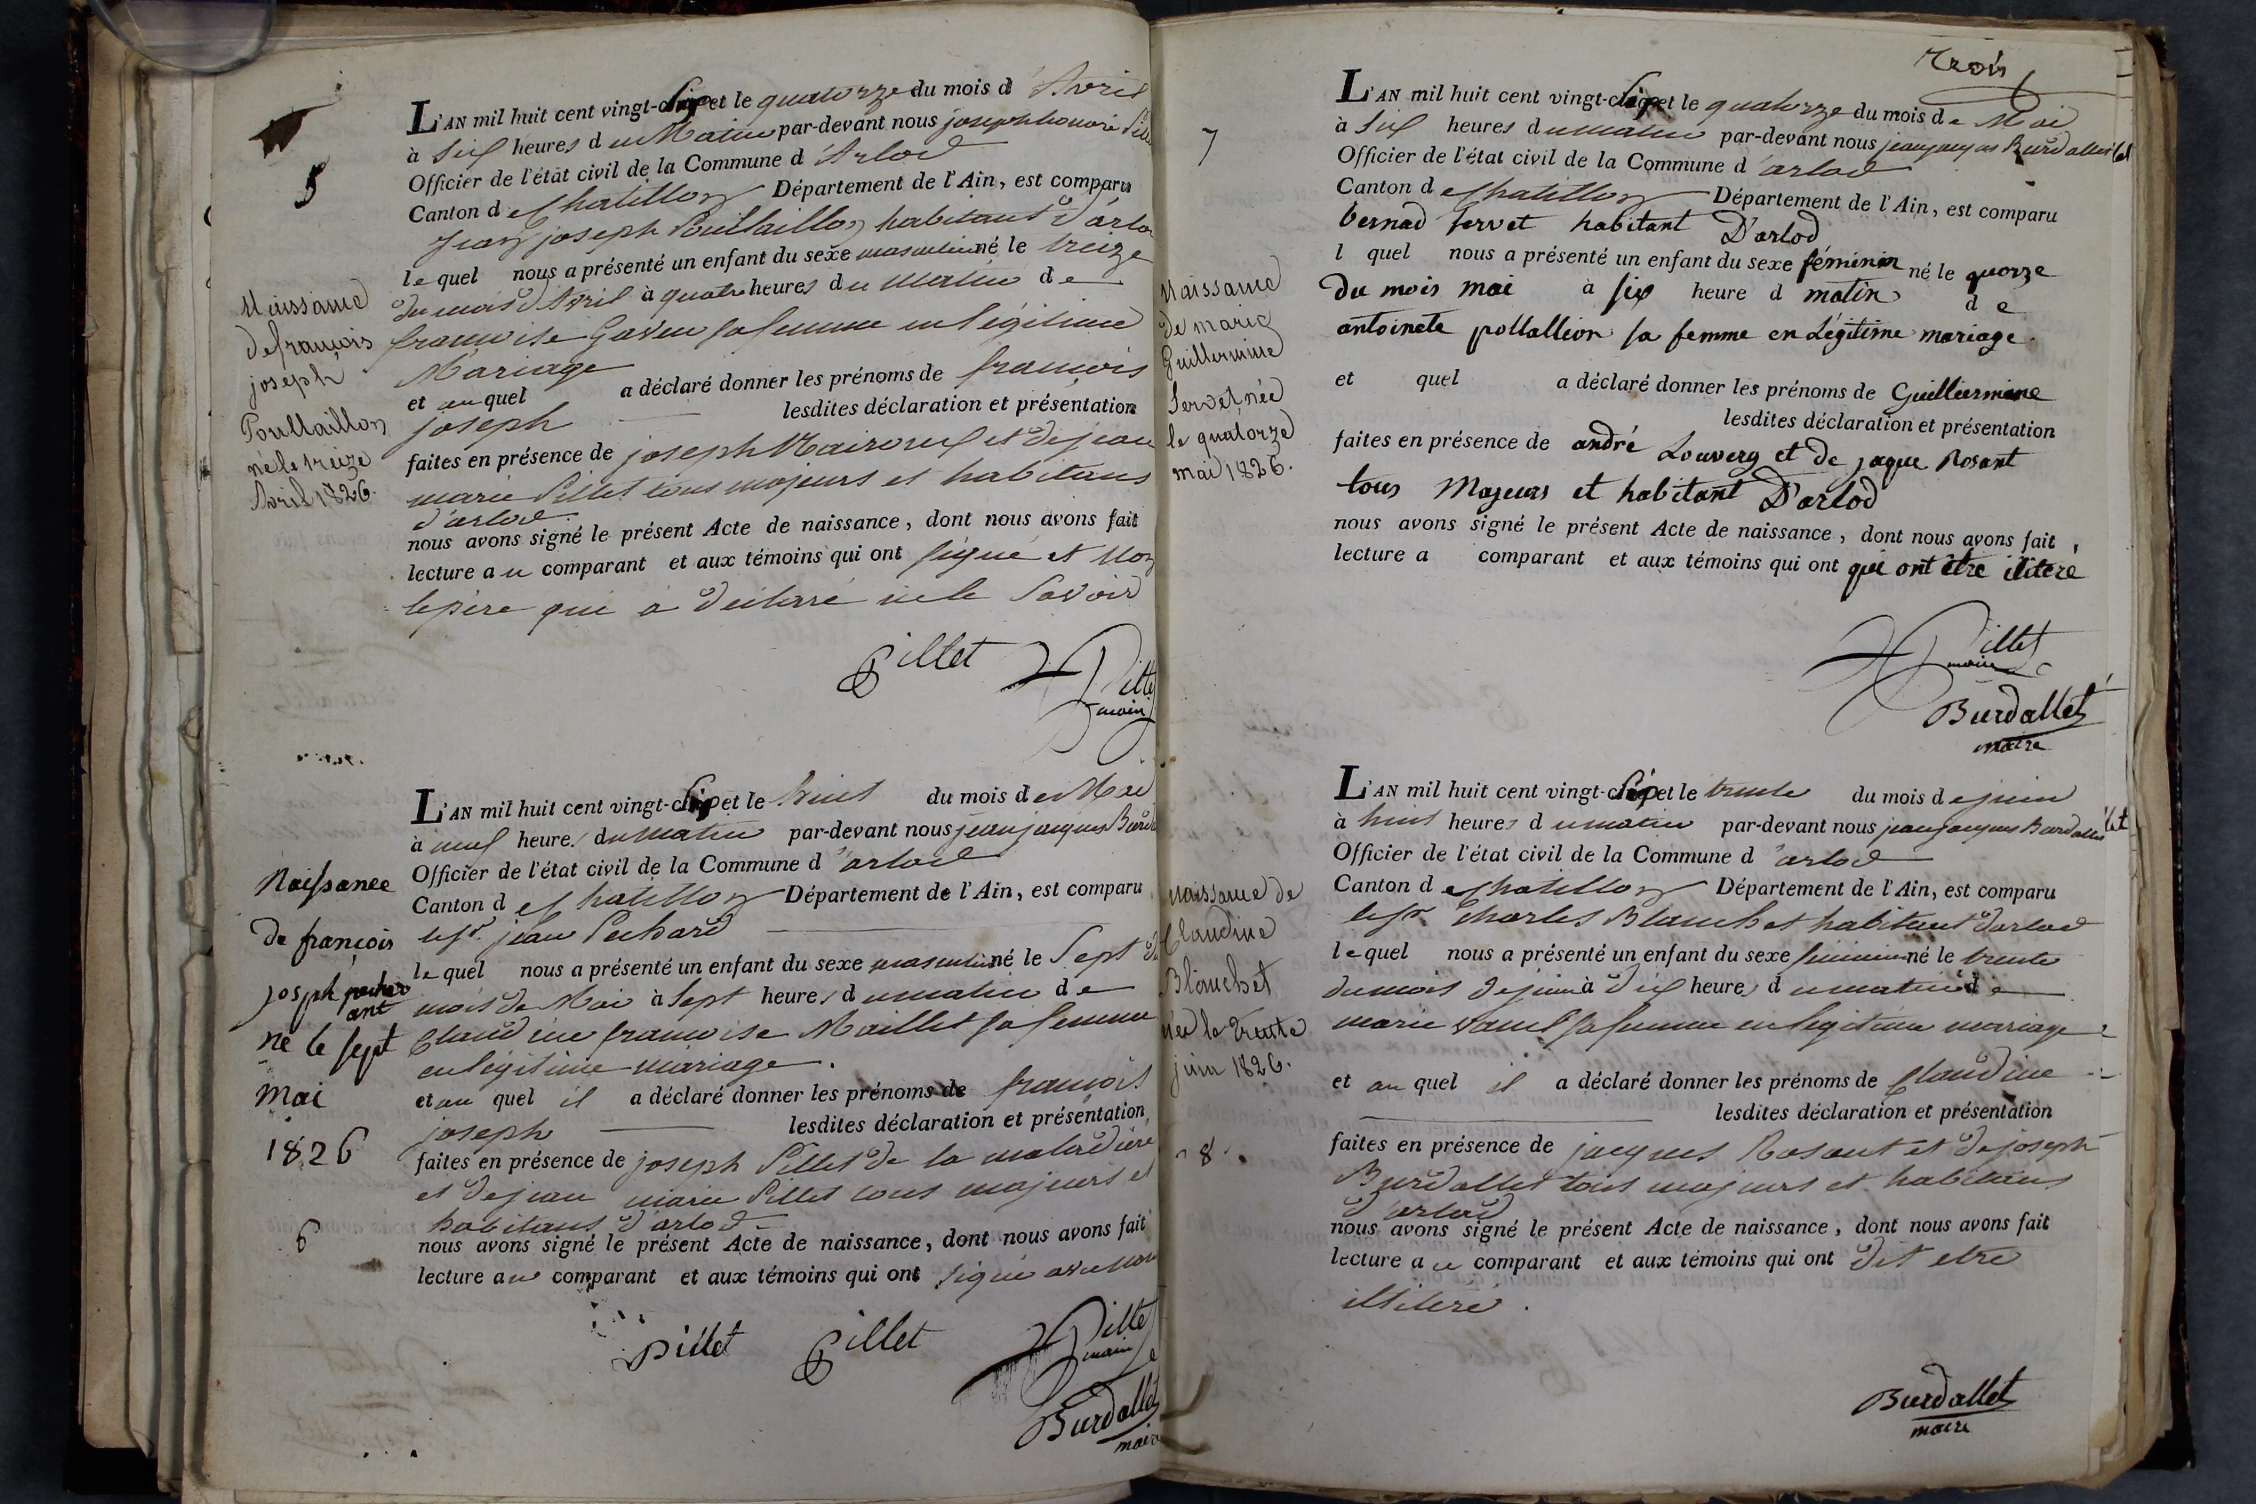 5
Naissance
de françois
joseph
Poullaillon
né le treize
Avril 1826.
L'AN mil huit cent vingt-six et le quatorze du mois d'Avril
à six heures du Matin par-devant nous joseph honoré Pillet
Officier de l'état civil de la Commune d'Arlod
Canton de Chatillon Département de l'Ain, est comparu
jean joseph Poullaillon habitant d'arlod
lequel nous a présenté un enfant du sexe masculin né le treize
du mois d'Avril à quatre heures du matin de
francoise Gaven sa femme en légitime
Mariage
et au quel a déclaré donner les prénoms de francois
joseph lesdites déclaration et présentation
faites en présence de joseph et de jean
marie Pillet tous majeurs et habitans
d'arlod
nous avons signé le présent Acte de naissance, dont nous avons fait
lecture au comparant et aux témoins qui ont signé et non
le père qui a déclaré ne le Savoir
Pillet Pillet
maire
Naissance
de françois
josph pechar
ant
né le sept
mai
1826
6
L'AN mil huit cent vingt-six et le huit du mois de Mai
à neuf heures du matin par-devant nous jean jacques Burdallet
Officier de l'état civil de la Commune d'arlod
Canton de Chatillon Département de l'Ain, est comparu
le sr. jean Pechard
lequel nous a présenté un enfant du sexe masculin né le Sept du
mois de Mai à Sept heures du matin de
Claudine francoise Maillet sa femme
en légitime mariage.
et au quel il a déclaré donner les prénoms de francois
joseph lesdites déclaration et présentation
faites en présence de joseph Pillet de la maladière
et de jean marie Pillet tous majeurs et
habitans d'arlod
nous avons signé le présent Acte de naissance, dont nous avons fait
lecture au comparant et aux témoins qui ont signé avec nous
Pillet Pillet Pillet
maire
Burdallet
maire
Trois
7
Naissance
de marie
Guillermine
Servet née
le quatorze
mai 1826.
L'AN mil huit cent vingt-six et le quatorze du mois de Mai
à six heures du matin par-devant nous jean jacques Burdallet
Officier de l'état civil de la Commune d'arlod
Canton de Chatillon Département de l'Ain, est comparu
bernad servet habitant D'arlod
l quel nous a présenté un enfant du sexe féminin né le quorze
du mois mai à six heure d matin de
antoinete pollallion sa femme en Légitime mariage.
et quel a déclaré donner les prénoms de Guilliermine
lesdites déclaration et présentation
faites en présence de andré Louvery et de jaque Rosant
tous Majeurs et habitant D'arlod
nous avons signé le présent Acte de naissance, dont nous avons fait
lecture a comparant et aux témoins qui ont qui ont être ilitéré
Pillet
maire
Burdallet
maire
naissance de
Claudine
Blanchet
née le trente
juin 1826.
8
L'AN mil huit cent vingt-six et le trente du mois de juin
à huit heures du matin par-devant nous jean jacques Burdallet
Officier de l'état civil de la Commune d'arlod
Canton de Chatillon Département de l'Ain, est comparu
le sr Charles Blanchet habitant d'arlod
lequel nous a présenté un enfant du sexe feminin né le trente
du mois de juin à six heures du matin de
marie sa femme en legitime mariage
et au quel il a déclaré donner les prénoms de Claudine
lesdites déclaration et présentation
faites en présence de jacques Rosant et de joseph
Burdallet tous majeurs et habitans
d'arlod
nous avons signé le présent Acte de naissance, dont nous avons fait
lecture au comparant et aux témoins qui ont dit etre
illiteré.
Burdallet
maire